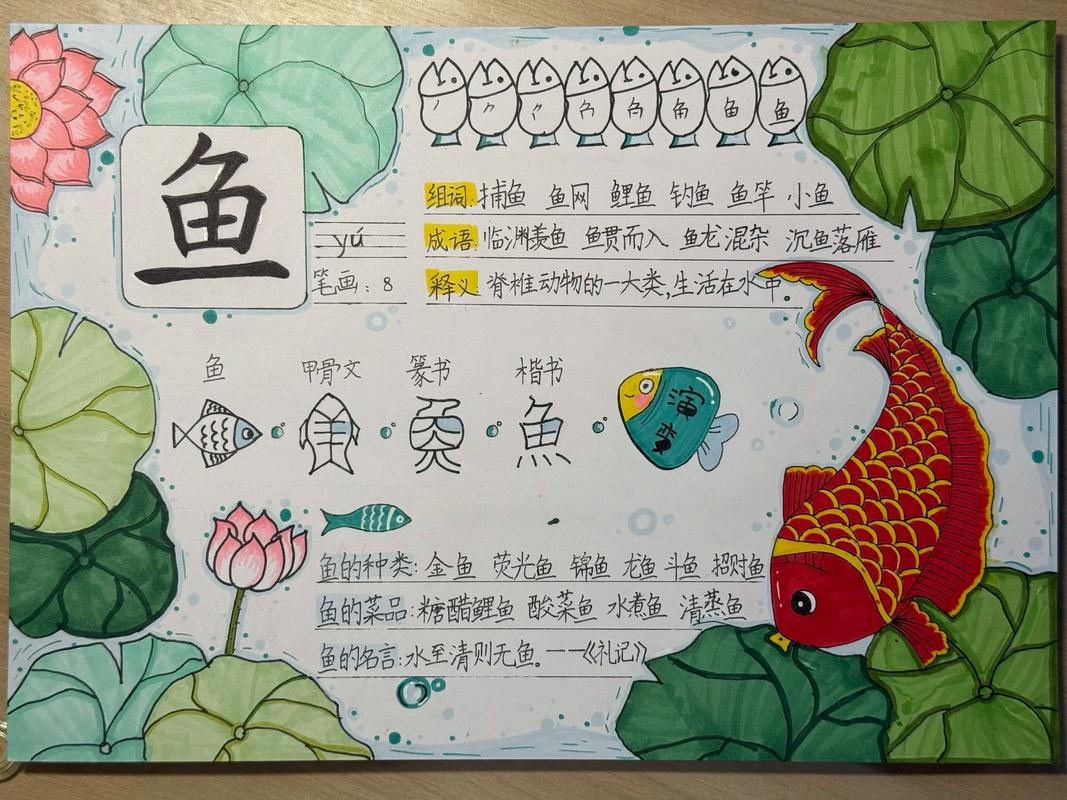 鱼
yú
笔画：8
丿 ⺈ 鱼 鱼
组词：捕鱼 鱼网 鲤鱼 钓鱼 鱼竿 小鱼
成语：临渊羡鱼 鱼贯而入 鱼龙混杂 沉鱼落雁
释义：脊椎动物的一大类，生活在水中。
鱼 甲骨文 篆书 楷书
魚
演变
鱼的种类：金鱼 荧光鱼 锦鱼 龙鱼 斗鱼 招财鱼
鱼的菜品：糖醋鲤鱼 酸菜鱼 水煮鱼 清蒸鱼
鱼的名言：水至清则无鱼。——《礼记》